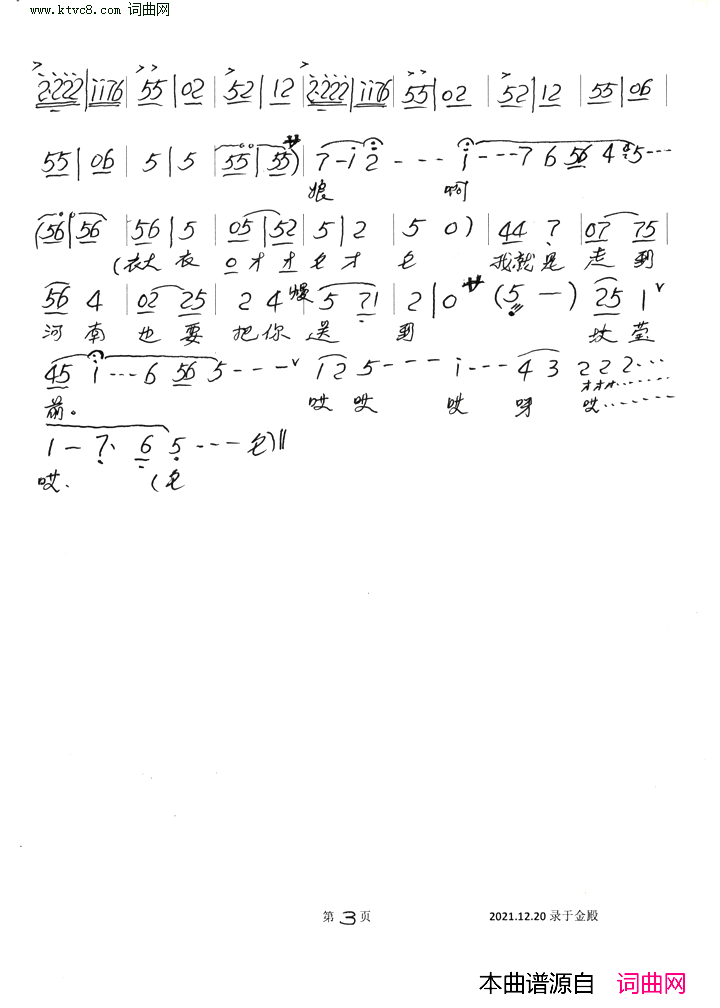 www.ktvc8.com 词曲网
2·2222|1176|55|02|52|12|2·2222|1176|55|02|52|12|55|06|
55|06|5|5|55|55) 7-i2---i---7 6 56 4 5---
娘 啊
(56|56|56|5|05|52|5|2|5 0)|44 7|07 75|
(衣大 衣 0 才 才 乇 才 乇 我就是 走 到
56 4|02 25|2 4 慢|5 71|2|0 サ (5 —) 25 1 ∨
河 南 也 要 把 你 送 到 坟 茔
45 i---6 56 5---∨ 12 5---i---4 3 222---
前。 哎 哎 哎 呀 哎……
1 — 7· 6 5---乇)‖
哎. (乇
第 3 页 2021.12.20 录于金殿
本曲谱源自 词曲网